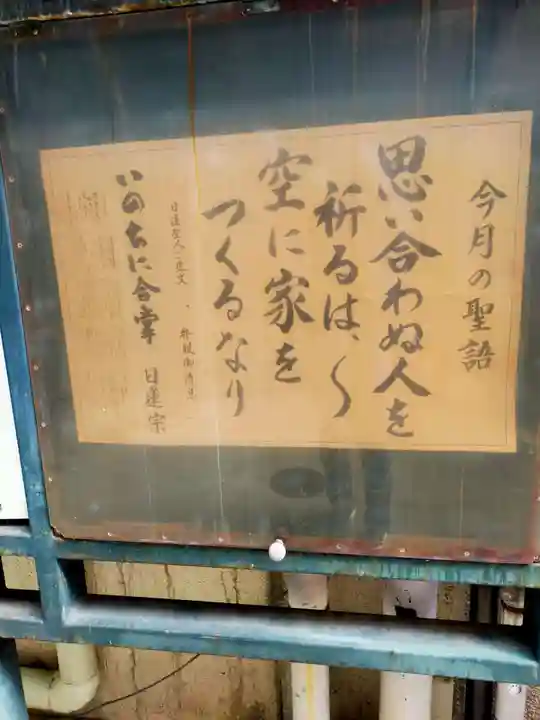 今月の聖語
思い合わぬ人を
祈るは、
空に家を
つくるなり
日蓮聖人ご遺文
いのちに合掌 日蓮宗